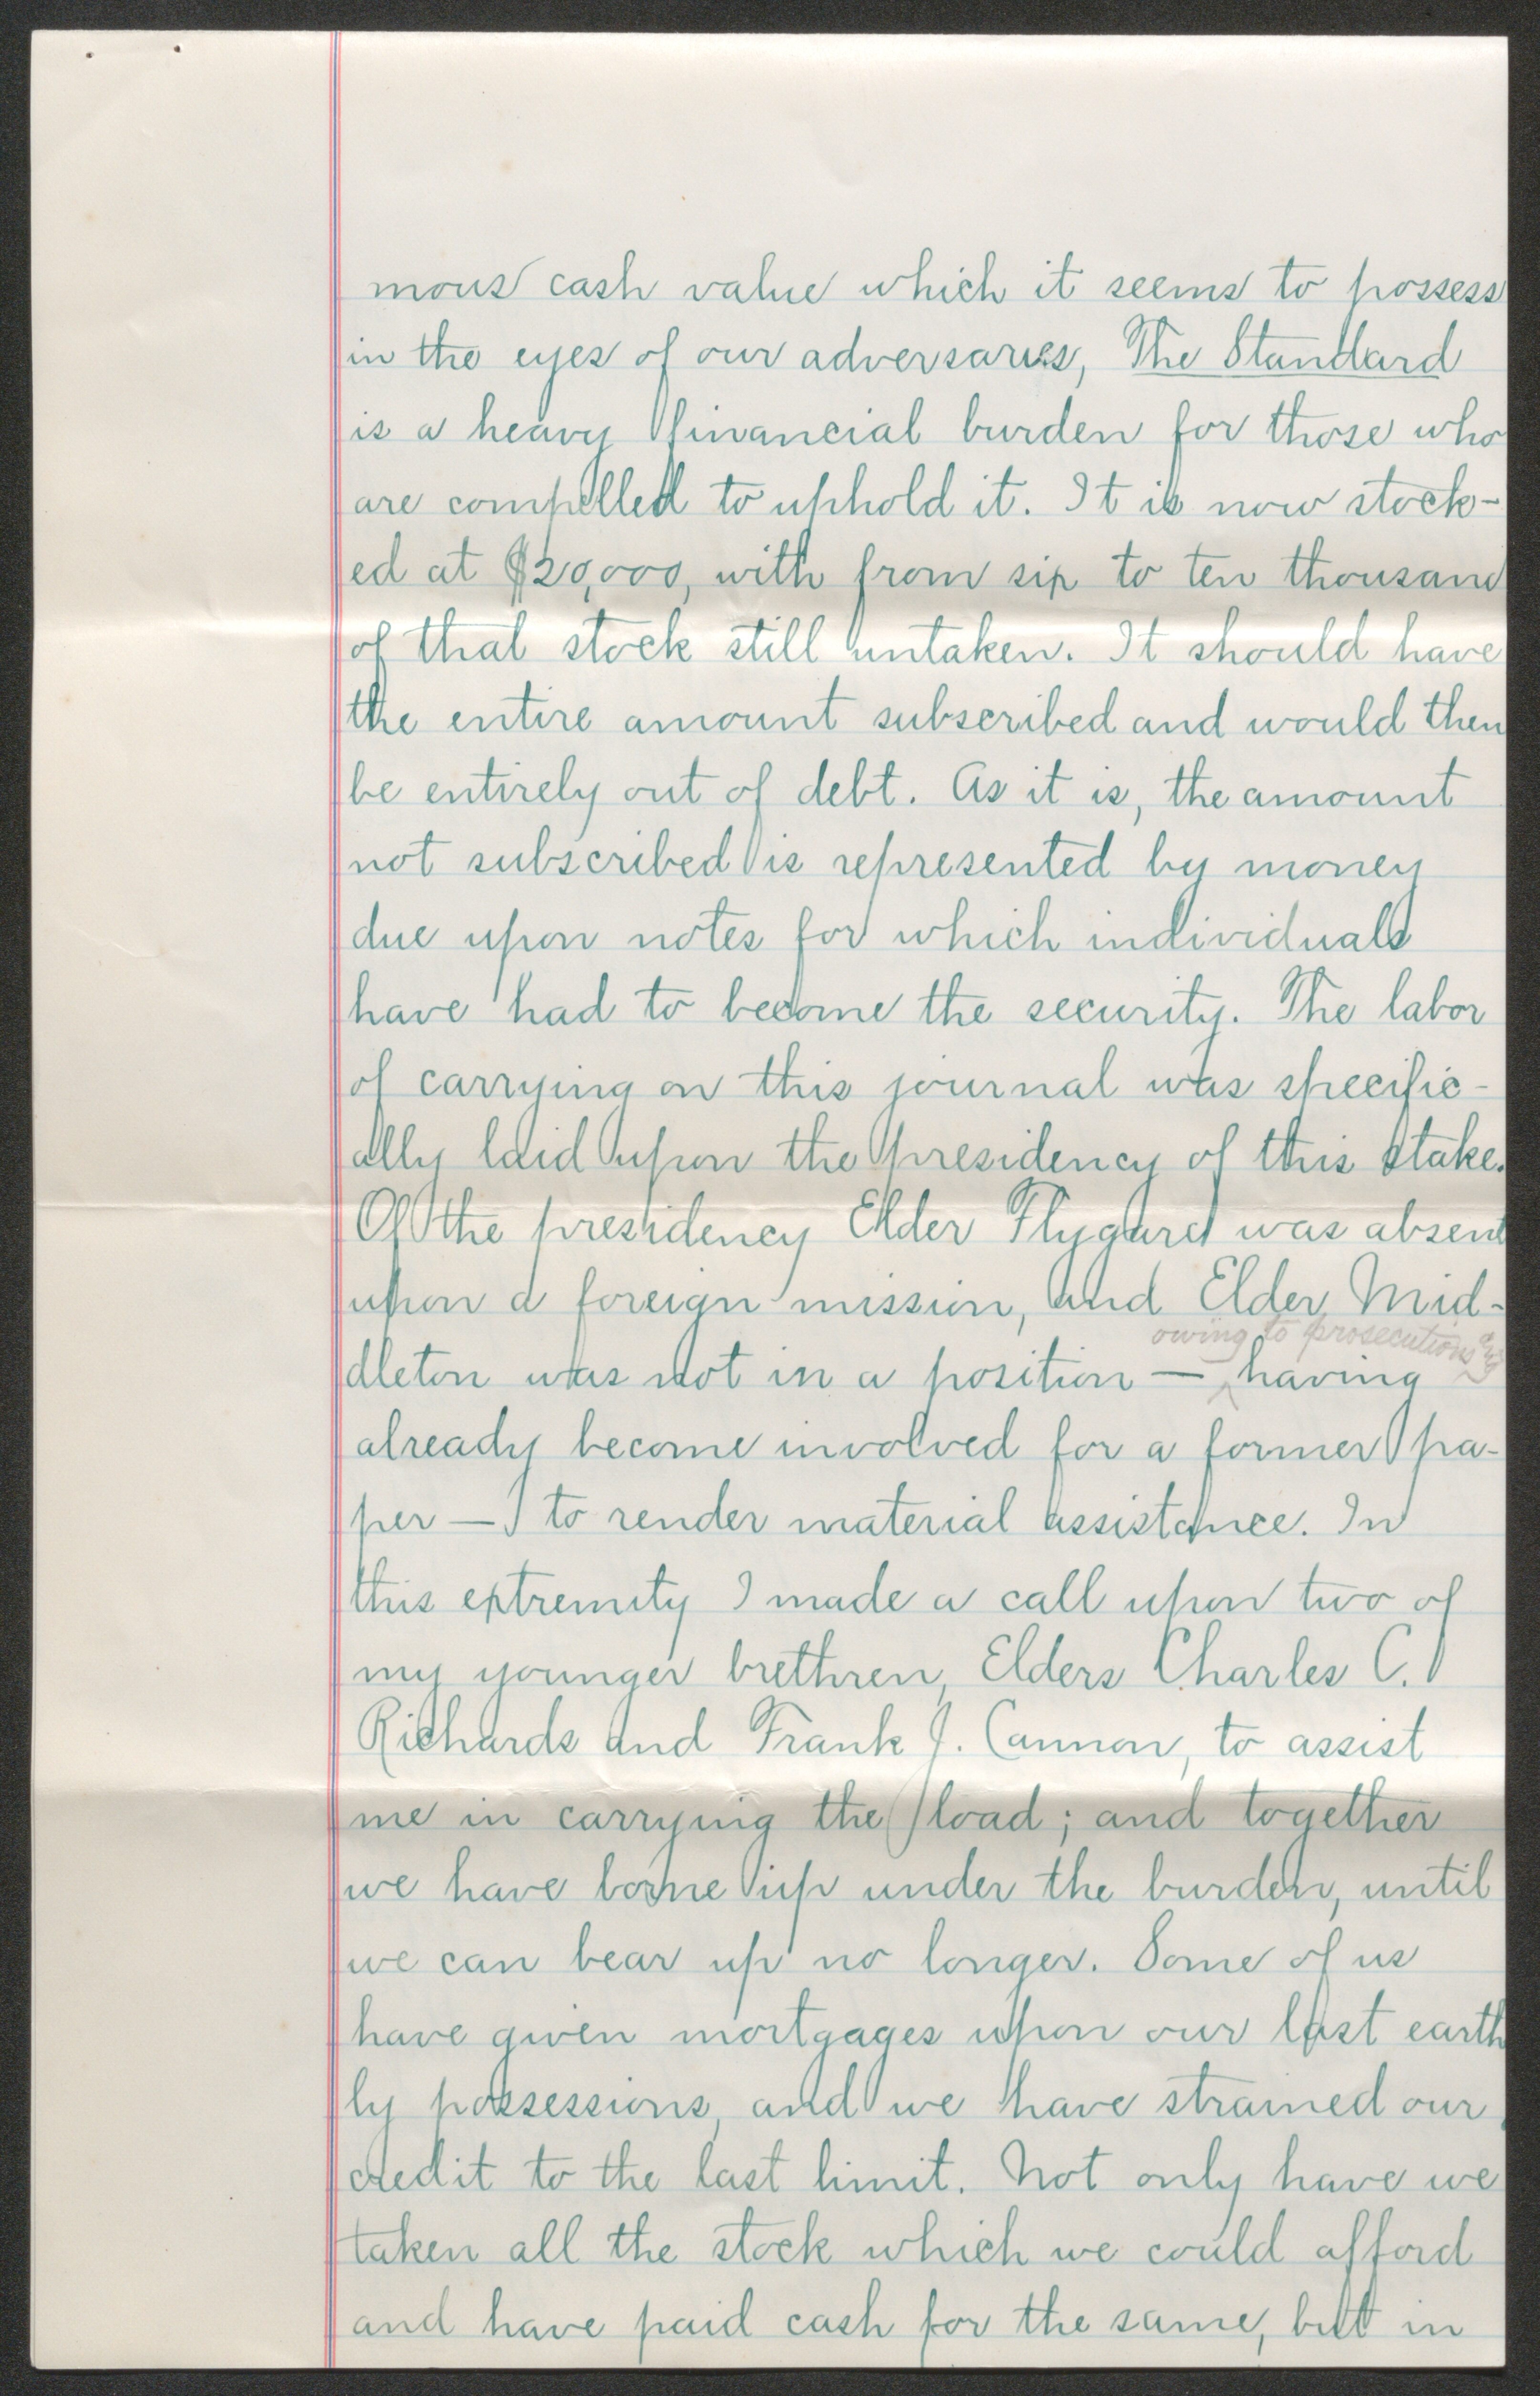 mous cash value which it seems to possess
in the eyes of our adversaries, The Standard
is a heavy financial burden for those who
are compelled to uphold it. It is now stock-
ed at $20,000, with from six to ten thousand
of that stock still untaken. It should have
the entire amount subscribed and would then
be entirely out of debt. As it is, the amount
not subscribed is represented by money
due upon notes for which individuals
have had to become the security. The labor
of carrying on this journal was specific-
ally laid upon the presidency of this stake.
Of the presidency Elder Flygard was absent
upon a foreign mission, and Elder Mid-
owing to prosecutions and
dleton was not in a position — having
already become involved for a former pa-
per — to render material assistance. In
this extremity I made a call upon two of
my younger brethren, Elders Charles C.
Richards and Frank J. Cannon, to assist
me in carrying the load; and together
we have borne up under the burden, until
we can bear up no longer. Some of us
have given mortgages upon our last earth
ly possessions, and we have strained our
credit to the last limit. Not only have we
taken all the stock which we could afford
and have paid cash for the same, but in